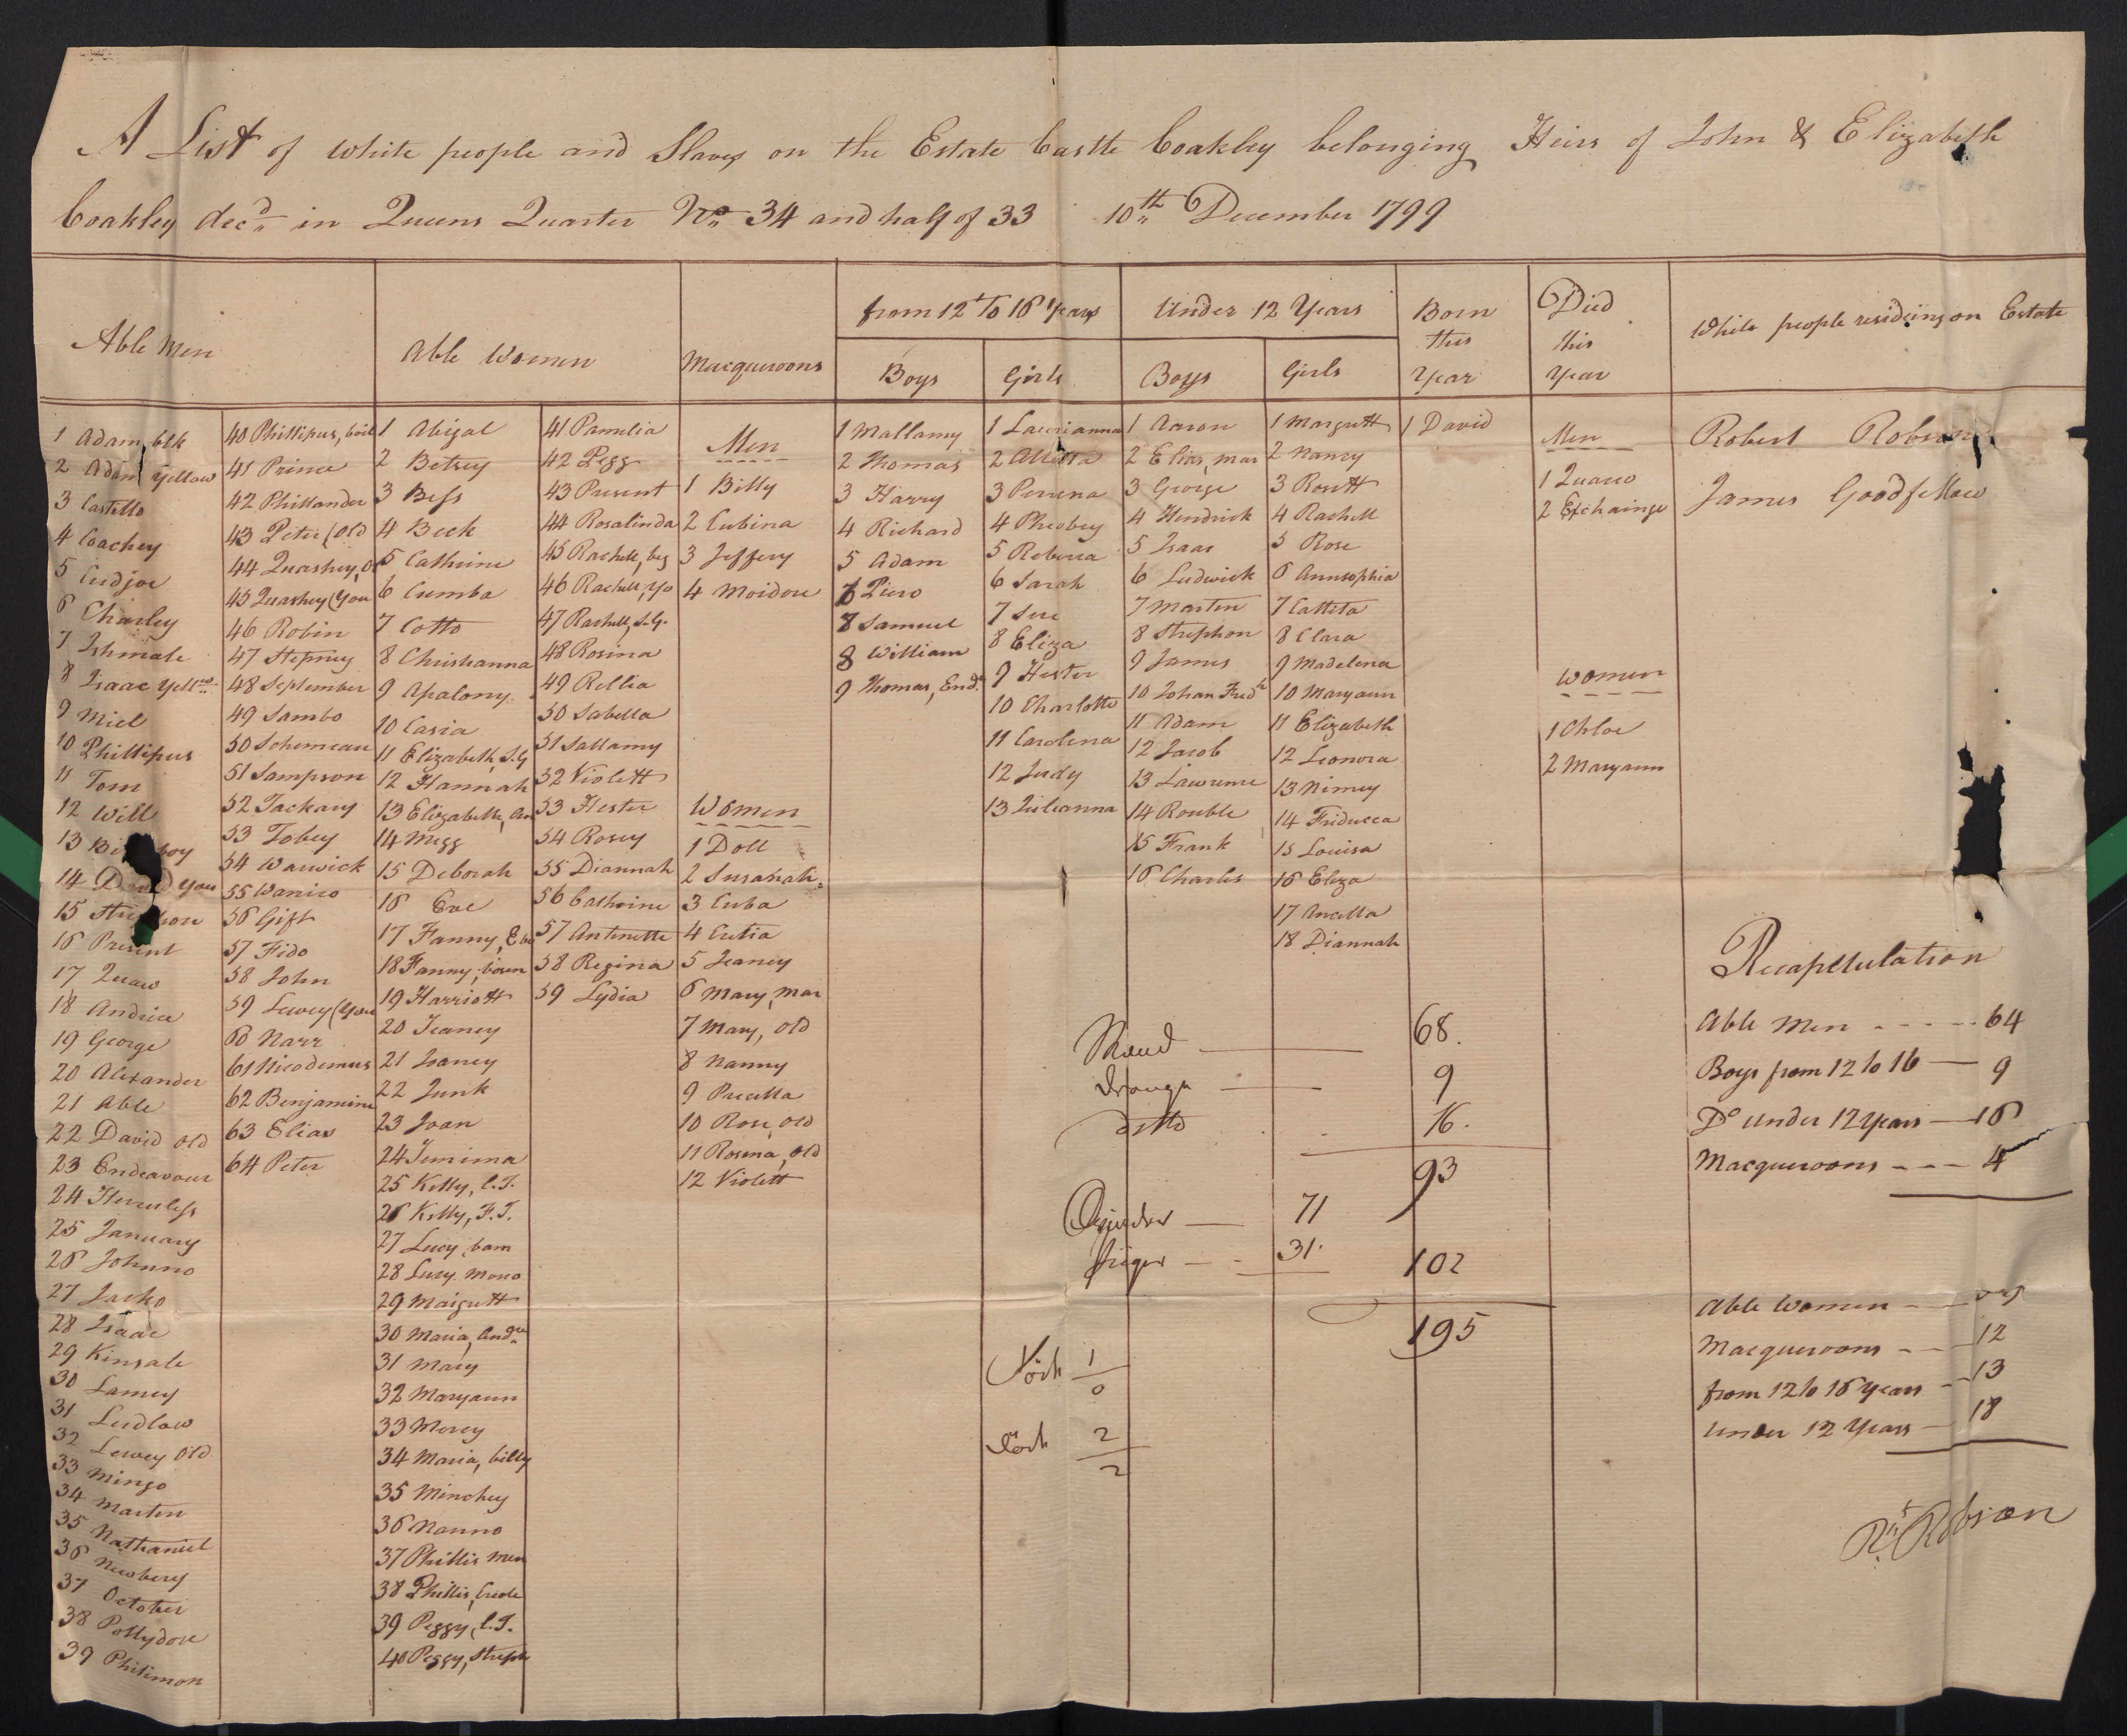 A List of White people and Slaves on the Estate Castle Coakley belonging Heirs of John & Elizabeth
Coakley decd in Queens Quarter No 34 and half of 33 10th December 1799
Able Men
Able Women
Macqueroons
from 12 to 16 Years
Boys
Girls
Under 12 Years
Boys
Girls
Born
this
Year
Died
this
Year
White people residing on Estate
1 Adam, blk
2 Adam Yellow
3 Castello
4 Coachey
5 Cudjoe
6 Charley
7 Ishmale
8 Isaac Yellow
9 Miel
10 Phillipus
11 Tom
12 Will
13 boy
14 David You
15
16 Present
17 Quaco
18 Andrice
19 George
20 Alexander
21 Able
22 David Old
23 Endeavour
24 Herculess
25 January
26 Johnno
27 Jacko
28 Isaac
29 Kinsale
30 Lamey
31 Ludlow
32 Lewey Old
33 Mingo
34 Martin
35 Nathaniel
36 Newbery
37 October
38 Pollydore
39 Philimon
40 Phillipus, boil
41 Prince
42 Phillander
43 Peter (Old
44 Quashey, O
45 Quashey (You
46 Robin
47 Stepney
48 September
49 Sambo
50
51 Sampson
52 Tackary
53 Tobey
54 Warwick
55 Wanico
56 Gift
57 Fido
58 John
59 Lewey (You
60 Narr
61 Nicodemus
62 Benjamine
63 Elias
64 Peter
1 Abigal
2 Betsey
3 Bess
4 Beck
5 Cathrine
6 Cumba
7 Cotto
8 Christianna
9 Apalony
10 Casia
11 Elizabeth, S.G
12 Hannah
13 Elizabeth, An
14 Megg
15 Deborah
16 Eve
17 Fanny, Ebo
18 Fanny, boun
19 Harriott
20 Jeaney
21 Isaney
22 Junk
23 Joan
24 Jemima
25 Kitty, C.T.
26 Kitty, F.T.
27 Lucy, bam
28 Lucy Mono
29 Margrett
30 Maria, And
31 Mary
32 Maryann
33 Mercy
34 Maria, billy
35 Minchey
36 Nanno
37 Phillis Mun
38 Phillis, Creole
39 Peggy, C.T.
40 Peggy, Steph
41 Pamelia
42 Pegg
43 Present
44 Rosalinda
45 Rachell, beg
46 Rachell, Yo
47 Rachell, S.G.
48 Rosina
49 Rellia
50 Sabella
51 Sallamy
52 Violett
53 Hester
54 Rosey
55 Diannah
56 Cathrine
57 Antinette
58 Regina
59 Lydia
Men
1 Billy
2 Cubina
3 Jeffery
4 Moidore
Women
1 Doll
2 Susanah
3 Cuba
4 Cutia
5 Jeaney
6 Mary, Mac
7 Mary, Old
8 Nanny
9 Precilla
10 Rose, Old
11 Rosina, Old
12 Violett
1 Mallamy
2 Thomas
3 Harry
4 Richard
5 Adam
6 Piero
7 Samuel
8 William
9 Thomas, End
1 Laurianna
2 Alletta
3 Penena
4 Pheobey
5 Rebecca
6 Sarah
7 Sue
8 Eliza
9 Hester
10 Charlotte
11 Carolina
12 Judy
13 Julianna
1 Aaron
2 Elias, Mar
3 George
4 Hendrick
5 Isaac
6 Ludwick
7 Martin
8 Strephon
9 James
10 Johan Fredk
11 Adam
12 Jacob
13 Lawrence
14 Rouble
15 Frank
16 Charles
1 Margrett
2 Nancy
3 Rosett
4 Rachell
5 Rose
6 Annsophia
7 Catteta
8 Clara
9 Madelena
10 Maryann
11 Elizabeth
12 Leonora
13 Nimey
14 Fridricca
15 Louisa
16 Eliza
17 Ancilla
18 Diannah
1 David
Men
1 Quaco
2 Exchainge
Women
1 Chloe
2 Maryann
Robert Robson
James Goodfellow
Mænd 68.
Drenge 9
ditto 16.
93
Qvinder 71
Piiger 31. 102
195
Föd 1
0
död 2
2
Recapitulation
Able Men 64
Boys from 12 to 16 9
Do Under 12 Years 16
Macqueroons 4
Able Women
Macqueroons 12
from 12 to 16 Years 13
Under 12 Years 18
Rt. Robson